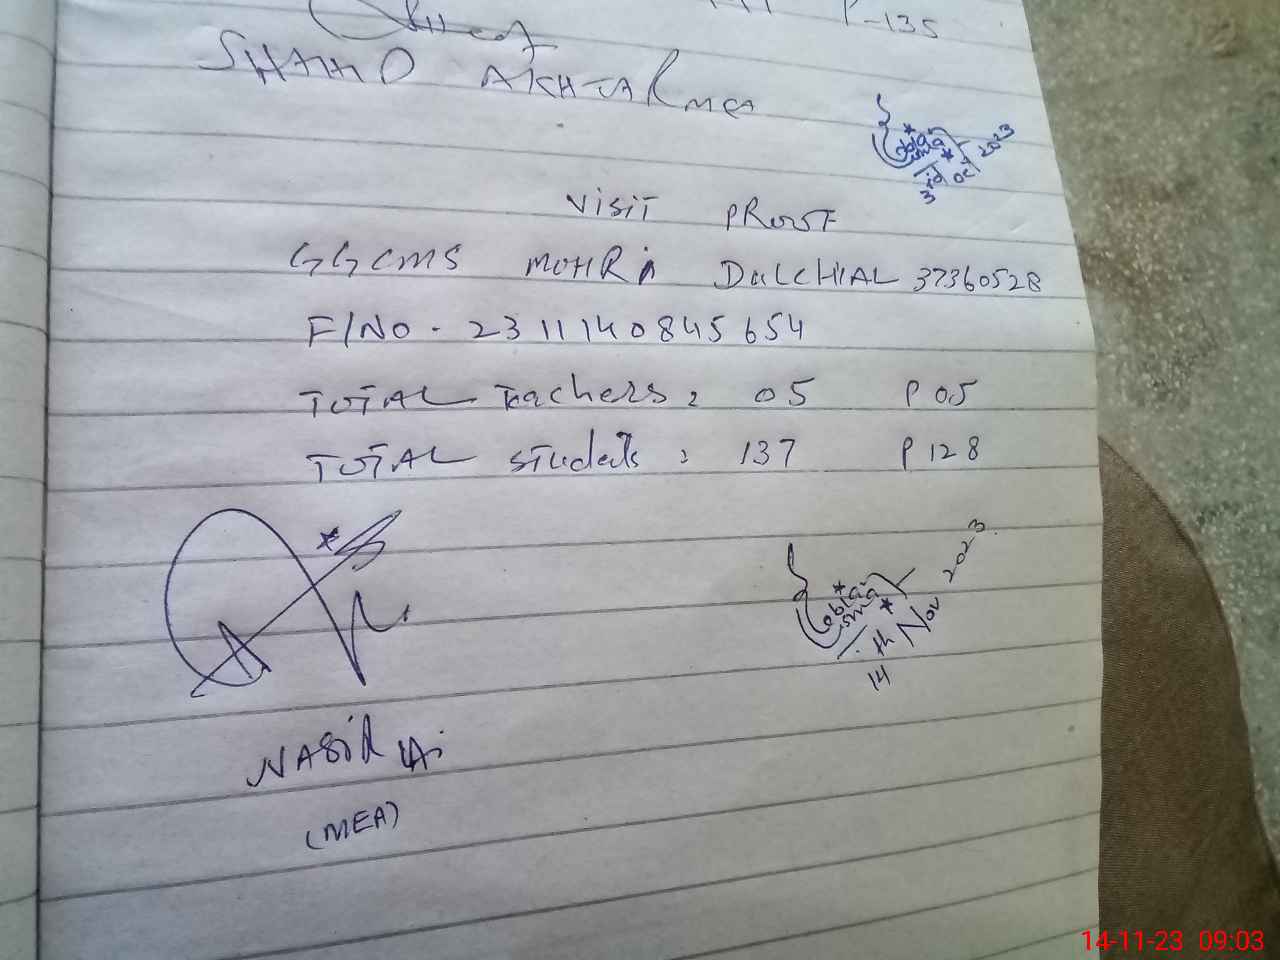 P-135
AKHTAR MEA
3rd Oct 2023
VISIT PROOF
GGCMS MOHRA DULCHIAL 37360528
F/NO. 23111140845654
TOTAL Teachers: 05 P 05
TOTAL Students: 137 P 128
14th Nov 2023
NASIR Ali
(MEA)
14-11-23 09:03